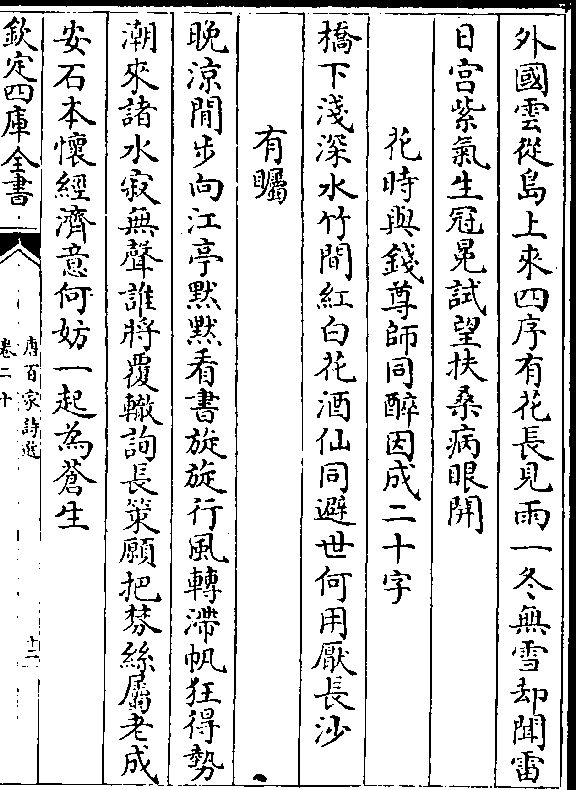 外國雲從島上來四序有花長見雨一冬無雪却聞雷
日宮紫氣生冠冕試望扶桑病眼開
花時與錢尊師同醉因成二十字
橋下淺深水竹間紅白花酒仙同避世何用厭長沙
有矚
晚涼閒步向江亭默默看書旋旋行風轉滯帆狂得勢
潮來諸水寂無聲誰將覆轍詢長策願把棼絲屬老成
安石本懷經濟意何妨一起為蒼生
欽定四庫全書
唐百家詩選
卷二十
十二